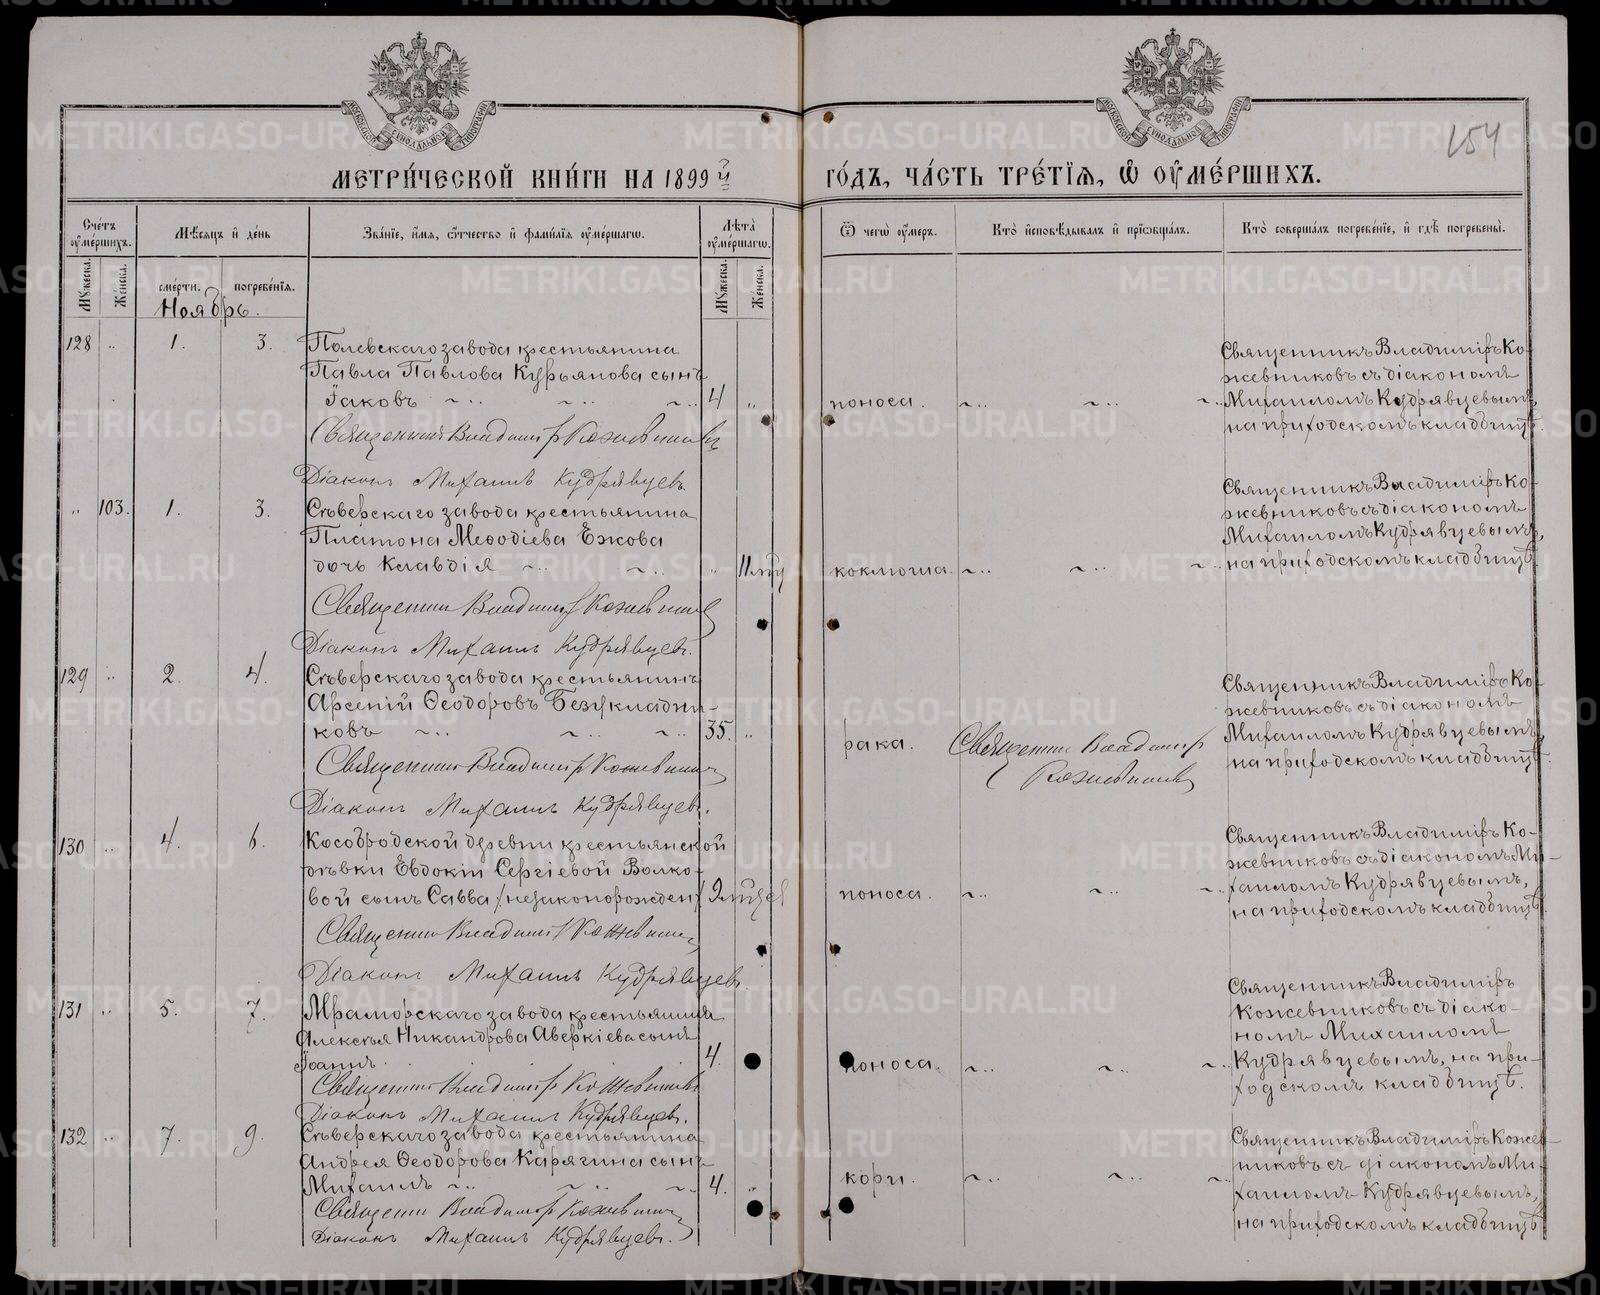 154
МЕТРИ́ЧЕСКОЙ КНИ́ГИ НА 1899й
ГО́ДЪ, ЧА́СТЬ ТРЕ́ТІѦ, Ѽ ОУ҆МЕ́РШИХЪ.
Сче́тъ оу҆ме́ршихъ.
Мѣ́сяцъ и҆ де́нь
Зва́нїе, и҆́мя, ѻ҆́тчество и҆ фами́лїя оу҆ме́ршагѡ.
Лѣ́та̀ оу҆ме́ршагѡ.
Ѿ чегѡ̀ оу҆́меръ.
Кто̀ и҆сповѣ́дывалъ и҆ прїѡбща́лъ.
Кто̀ соверша́лъ погребе́нїе, и҆ гдѣ̀ погребены̀.
Мꙋ́жеска.
Же́нска.
сме́рти.
погребе́нїя.
Мꙋ́жеска.
Же́нска.
Ноябрь.
128 „ 1. 3. Полевскаго завода крестьянина
Павла Павлова Курьянова сынъ
Іаковъ 4 „ поноса.
Священникъ Владиміръ Кожевниковъ
Діаконъ Михаилъ Кудрявцевъ
Священникъ Владиміръ Ко-
жевниковъ съ діакономъ
Михаиломъ Кудрявцевымъ,
на приходскомъ кладбищѣ.
„ 103. 1. 3. Сѣверскаго завода крестьянина
Платона Меѳодіева Ежова
дочь Клавдія „ 11 мцъ коклюша.
Священникъ Владиміръ Кожевниковъ
Діаконъ Михаилъ Кудрявцевъ.
Священникъ Владиміръ Ко-
жевниковъ съ діакономъ
Михаиломъ Кудрявцевымъ,
на приходскомъ кладбищѣ.
129 „ 2. 4. Сѣверскаго завода крестьянинъ
Арсеній Ѳеодоровъ Безукладни-
ковъ 35. „ рака.
Священникъ Владиміръ
Кожевниковъ
Священникъ Владиміръ Кожевниковъ
Діаконъ Михаилъ Кудрявцевъ.
Священникъ Владиміръ Ко-
жевниковъ съ діакономъ
Михаиломъ Кудрявцевымъ,
на приходскомъ кладбищѣ.
130 „ 4. 6. Кособродской деревни крестьянской
дѣвки Евдокіи Сергіевой Волко-
вой сынъ Савва /незаконорожден/ 9 мцев поноса.
Священникъ Владиміръ Кожевниковъ
Діаконъ Михаилъ Кудрявцевъ.
Священникъ Владиміръ Ко-
жевниковъ съ діакономъ Ми-
хаиломъ Кудрявцевымъ,
на приходскомъ кладбищѣ.
131 „ 5. 7. Мраморскаго завода крестьянина
Алексѣя Никандрова Аверкіева сынъ
Іоаннъ 4. поноса.
Священникъ Владиміръ Кожевниковъ
Діаконъ Михаилъ Кудрявцевъ.
Священникъ Владиміръ
Кожевниковъ съ діако-
номъ Михаиломъ
Кудрявцевымъ, на при-
ходскомъ кладбищѣ.
132 „ 7. 9. Сѣверскаго завода крестьянина
Андрея Ѳеодорова Карягина сынъ
Михаилъ 4. „ кори.
Священникъ Владиміръ Кожевниковъ
Діаконъ Михаилъ Кудрявцевъ.
Священникъ Владиміръ Кожев-
никовъ съ діакономъ Ми-
хаиломъ Кудрявцевымъ,
на приходскомъ кладбищѣ
METRIKI.GASO-URAL.RU